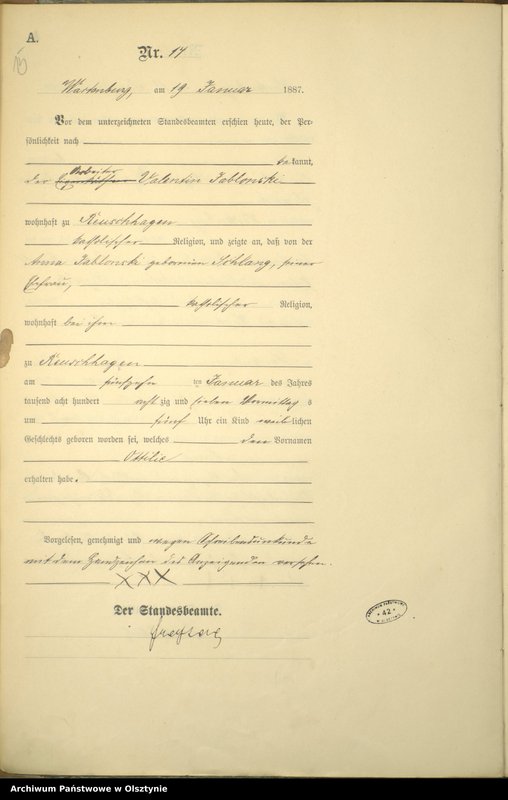 A.
15
Nr. 17
Wartenburg, am 19 Januar 1887.
Vor dem unterzeichneten Standesbeamten erschien heute, der Per-
sönlichkeit nach
bekannt,
Arbeiter
der Valentin Jablonski
wohnhaft zu Reuschhagen
katholischer Religion, und zeigte an, daß von der
Anna Jablonski geborenen Schlang, seiner
Ehefrau,
katholischer Religion,
wohnhaft bei ihm
zu Reuschhagen
am fünfzehn ten Januar des Jahres
tausend acht hundert acht zig und sieben Vormittag s
um fünf Uhr ein Kind weib lichen
Geschlechts geboren worden sei, welches den Vornamen
Ottilie
erhalten habe.
Vorgelesen, genehmigt und wegen Schreibensunkunde
mit dem Handzeichen des Anzeigenden versehen.
XXX
Der Standesbeamte.
42
Archiwum Państwowe w Olsztynie